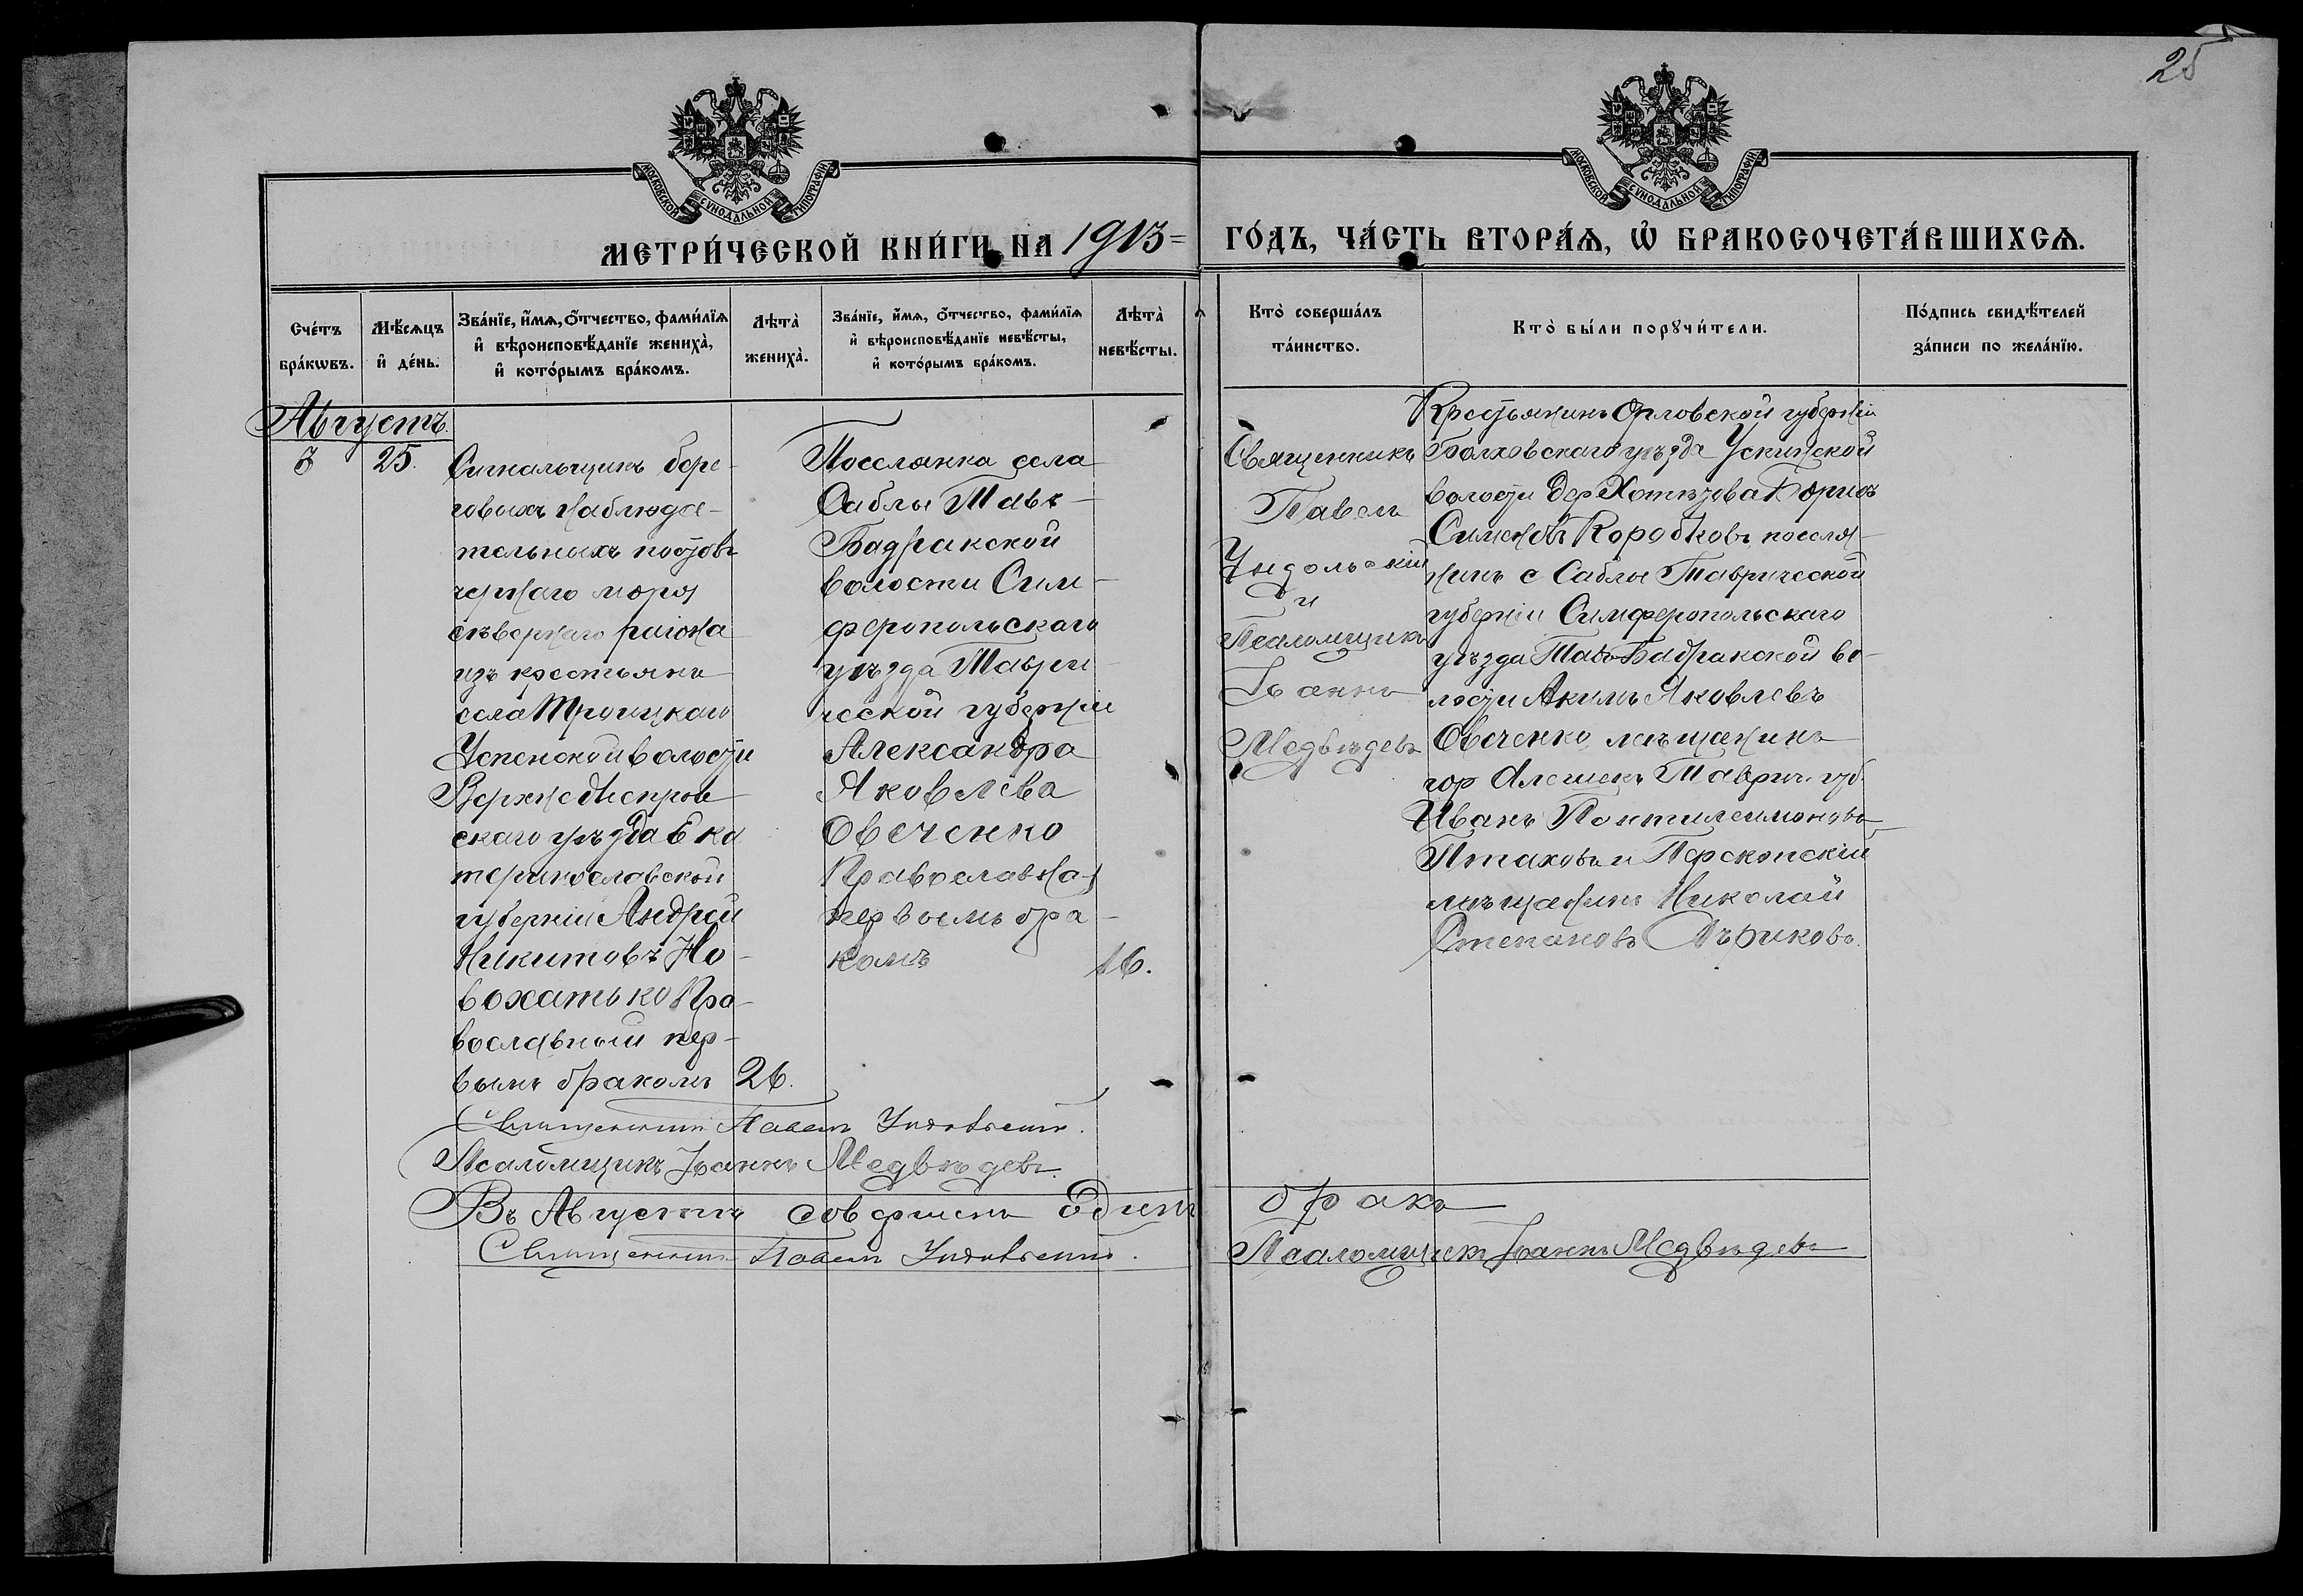 25
МОСКОВСКОЙ СѴНОДАЛЬНОЙ ТИПОГРАФІИ
МОСКОВСКОЙ СѴНОДАЛЬНОЙ ТИПОГРАФІИ
МЕТРИ́ЧЕСКОЙ КНИ́ГИ НА 1913 =
ГО́ДЪ, ЧА́СТЬ ВТОРА́Ѧ, Ѡ҆ БРАКОСОЧЕТА́ВШИХСѦ.
Сче́тъ
бра́кѡвъ.
Мѣ́сѧцъ
и҆ де́нь.
Зва́нїе, и҆́мѧ, ѻ҆́тчество, фами́лїѧ
и҆ вѣроисповѣ́данїе жениха̀,
и҆ кото́рымъ бра́комъ.
Лѣта̀
жениха̀.
Зва́нїе, и҆́мѧ, ѻ҆́тчество, фами́лїѧ
и҆ вѣроисповѣ́данїе невѣ́сты,
и҆ кото́рымъ бра́комъ.
Лѣта̀
невѣ́сты.
Кто̀ соверша́лъ
та́инство.
Кто̀ бы́ли порꙋчи́тели.
По́дпись свидѣ́телей
за́писи по жела́нїю.
Августъ.
3
25.
Сигнальщикъ бере-
говыхъ наблюда-
тельныхъ постовъ
чернаго моря
сѣвернаго раіона
изъ крестьянъ
села Троицкаго
Успенской волости
Верхнеднепров
скаго уѣзда Ека
теринославской
губерніи Андрей
Никитовъ Но-
вохатько Пра-
вославный пер-
вымъ бракомъ
26.
Поселянка села
Саблы Тавъ-
Бадракской
волости Сим-
феропольскаго
уѣзда Таври-
ческой губерніи
Александра
Яковлева
Овеченко
Православная
первымъ бра-
комъ
16.
Священникъ
Павелъ
Ундольскій
и
Псаломщикъ
Іоаннъ
Медвѣдевъ
Крестьянинъ Орловской губерніи
Болховскаго уѣзда
волости дер Хотѣтова Борисъ
Сименовъ Коробковъ поселя-
нинъ с Саблы Таврической
губерніи Симферопольскаго
уѣзда Тавъ-Бадракской во-
лости Акимъ Яковлевъ
Овеченко, мѣщанинъ
гор Алешекъ Таврич. губ.
Иванъ Пантилеимоновъ
Птаховъ и Перекопскій
мѣщанинъ Николай
Степановъ
Священникъ Павелъ Ундольскій.
Псаломщикъ Іоаннъ Медвѣдевъ.
Въ Августѣ совершенъ Единъ бракъ
Священникъ Павелъ Ундольскій. Псаломщикъ Іоаннъ Медвѣдевъ